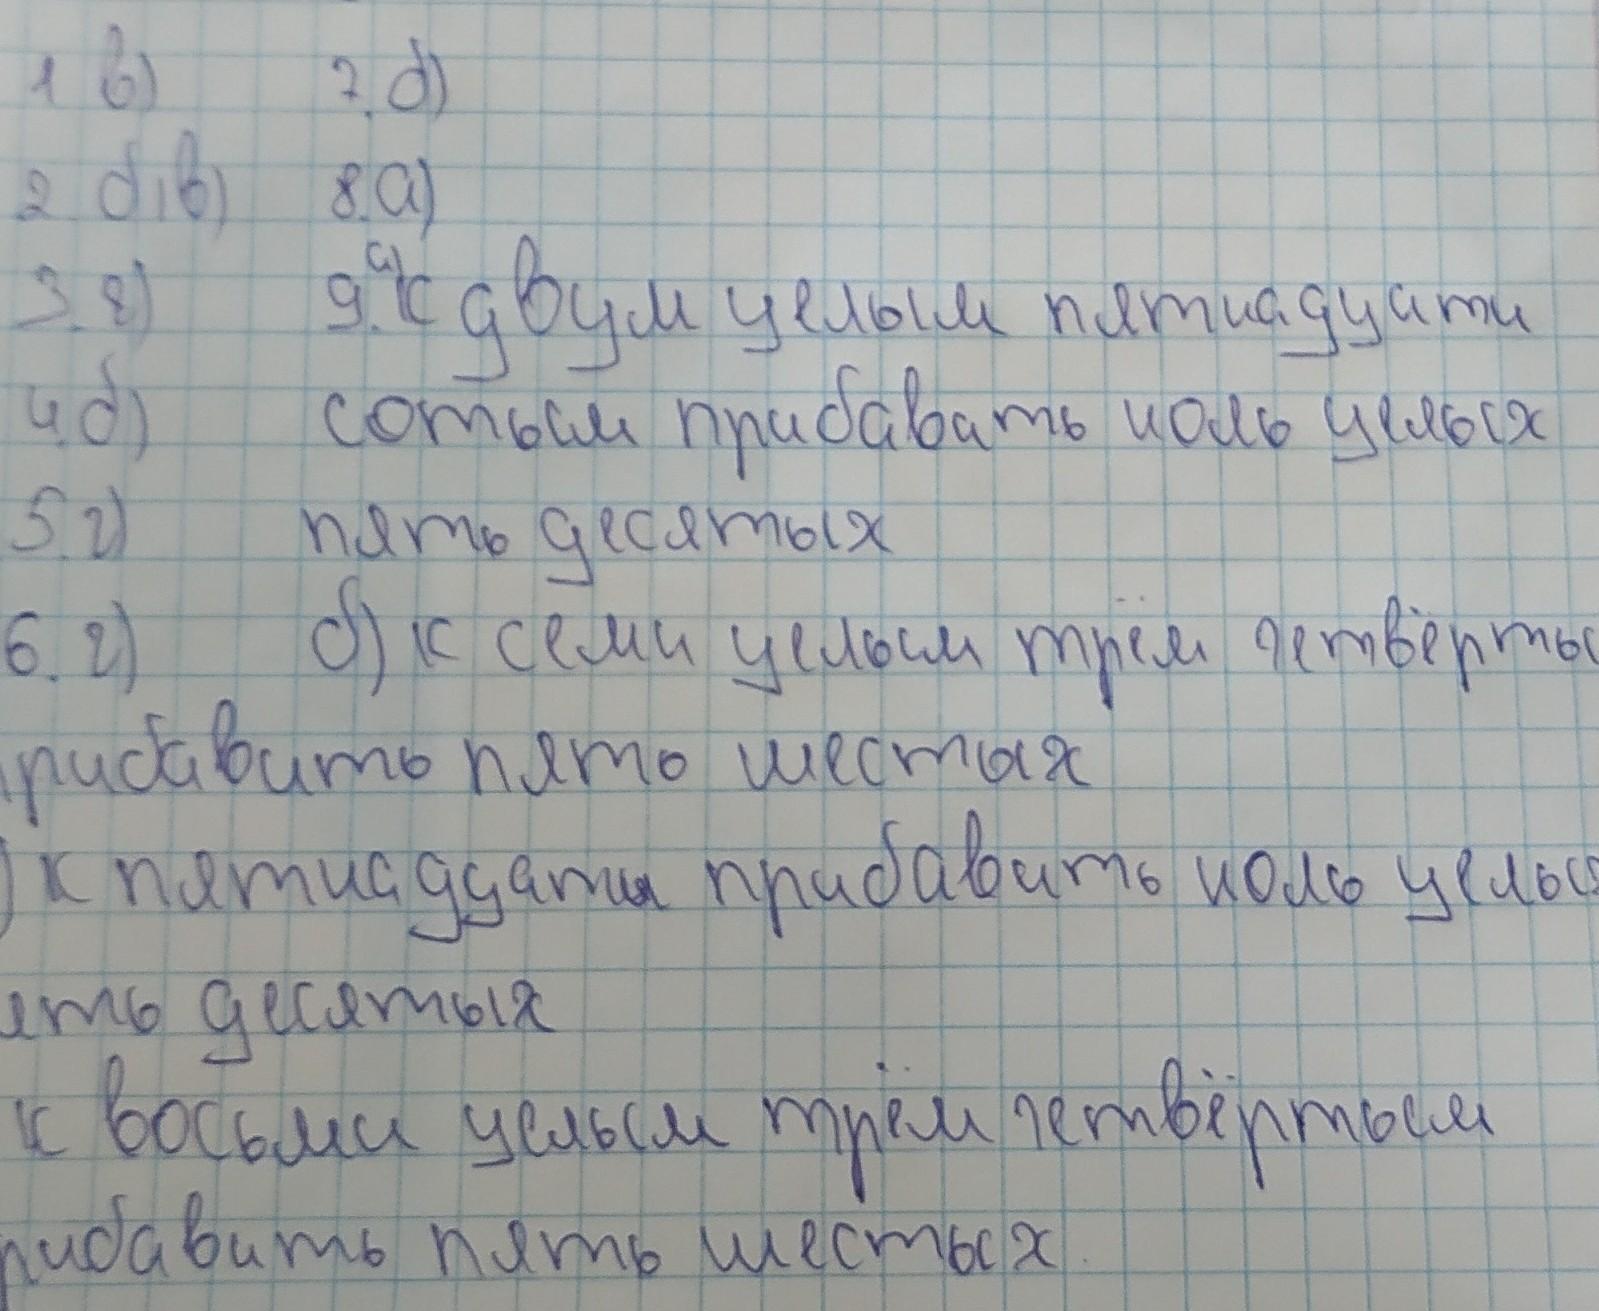 1 в) 7. б)
2 б,в) 8. а)
3. г) 9. а) к двум целым пятнадцати
4. б) сотым прибавать ноль целых
5. г) пять десятых
6. г) б) к семи целым трём четвёрты
рибавить пять шестых
) к пятнаддати прибавить ноль целых
ять десятых
к восьми целым трём четвёртым
рибавить пять шестых.